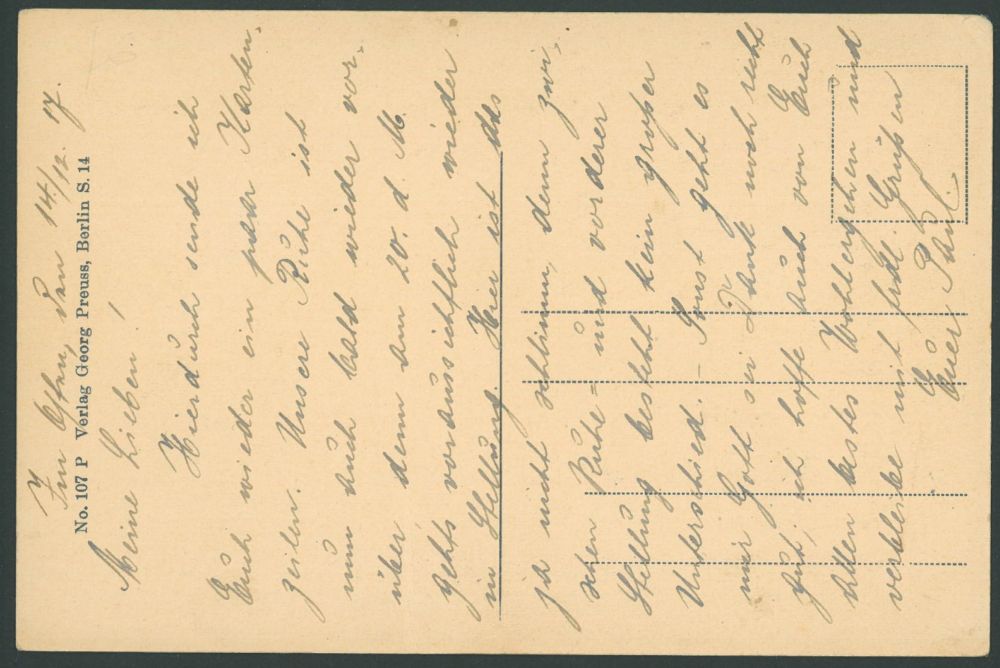 Im Osten, den 14/12. 17.
No. 107 P Verlag Georg Preuss, Berlin S. 14
Meine Lieben!
Hierdurch sende ich
Euch wieder ein paar Karten-
zeilen. Unsere Ruhe ist
nun auch bald wieder vor-
über denn am 20. d. M.
gehts voraussichtlich wieder
in Stellung. Hier ist das
ja nicht schlimm, denn zwi-
schen Ruhe- und vorderer
Stellung besteht kein großer
Unterschied. - Sonst geht es
mir Gott sei Dank noch recht
gut, ich hoffe auch von Euch
Allen bestes Wohlergehen und
verbleibe mit frdl. Grüßen
Euer Paul.